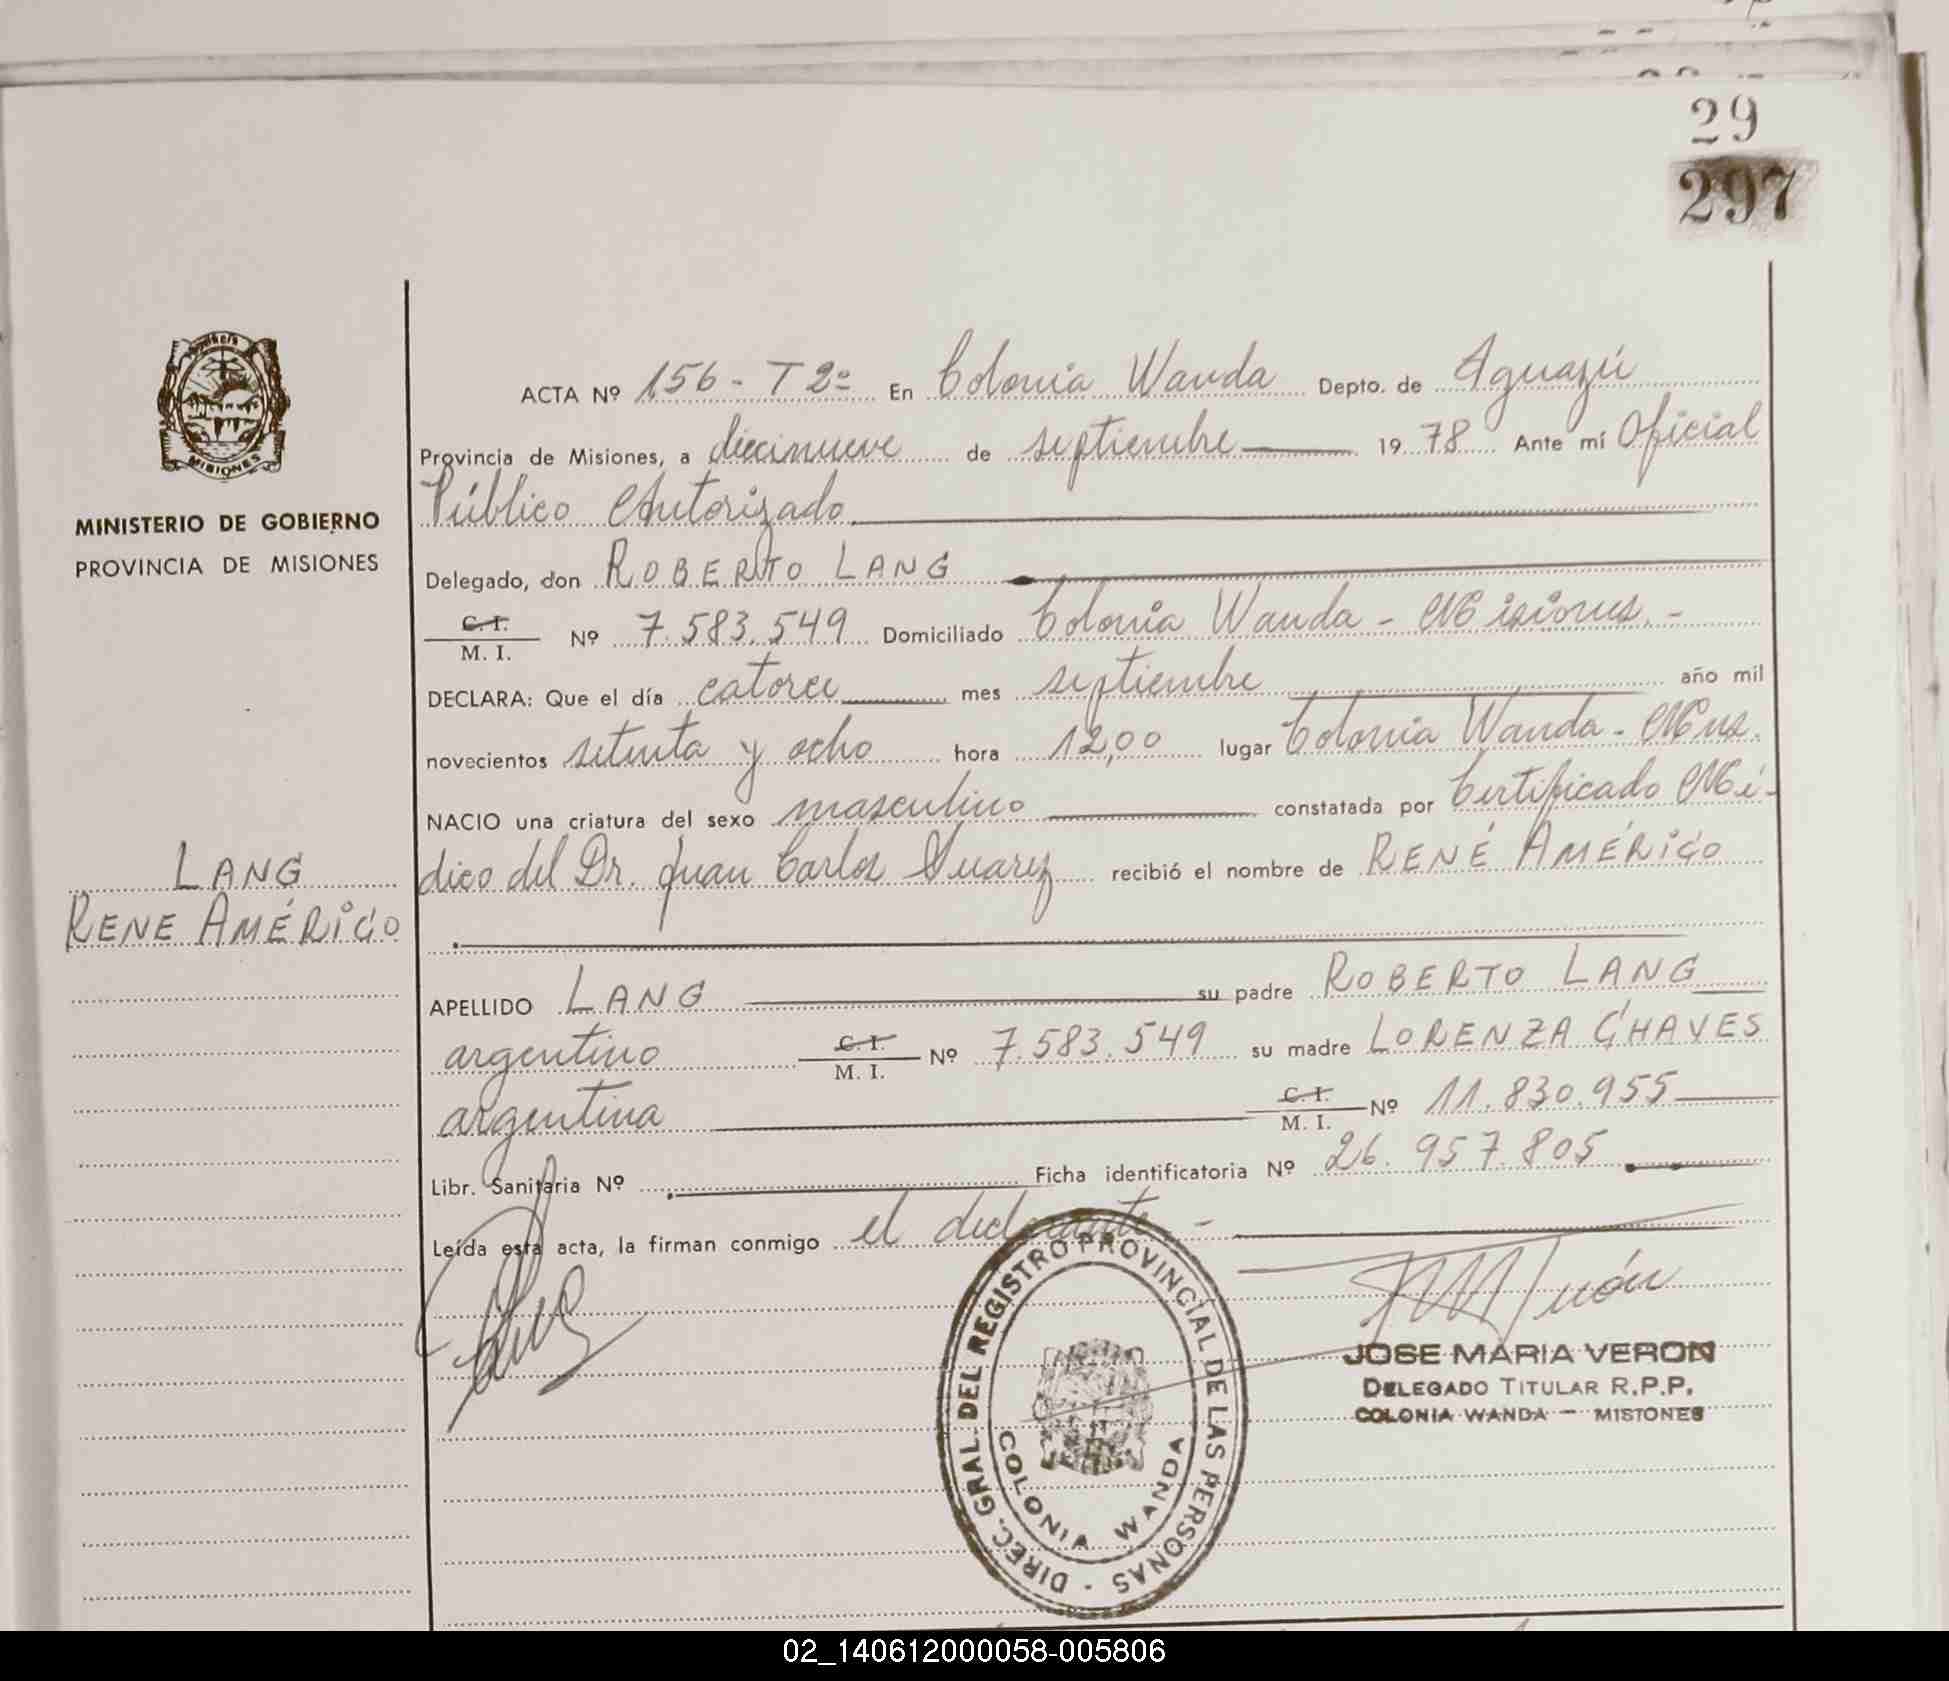 29
297
MISIONES
MINISTERIO DE GOBIERNO
PROVINCIA DE MISIONES
LANG
RENE AMÉRICO
ACTA Nº 156 - T 2º En Colonia Wanda Depto. de Iguazú
Provincia de Misiones, a diecinueve de septiembre 19 78 Ante mí Oficial
Público Autorizado
Delegado, don ROBERTO LANG
C. I. / M. I. Nº 7.583.549 Domiciliado Colonia Wanda - Misiones. -
DECLARA: Que el día catorce mes septiembre año mil
novecientos setenta y ocho hora 12,00 lugar Colonia Wanda - Mnes.
NACIO una criatura del sexo masculino constatada por Certificado Mé-
dico del Dr. Juan Carlos Suarez recibió el nombre de RENÉ AMÉRICO
APELLIDO LANG su padre ROBERTO LANG
argentino C. I. / M. I. Nº 7.583.549 su madre LORENZA CHAVES
argentina C. I. / M. I. Nº 11.830.955
Libr. Sanitaria Nº Ficha identificatoria Nº 26.957.805
Leída esta acta, la firman conmigo el declarante. -
DIREC. GRAL. DEL REGISTRO PROVINCIAL DE LAS PERSONAS -
COLONIA WANDA
JOSE MARIA VERON
DELEGADO TITULAR R.P.P.
COLONIA WANDA - MISIONES
02_140612000058-005806